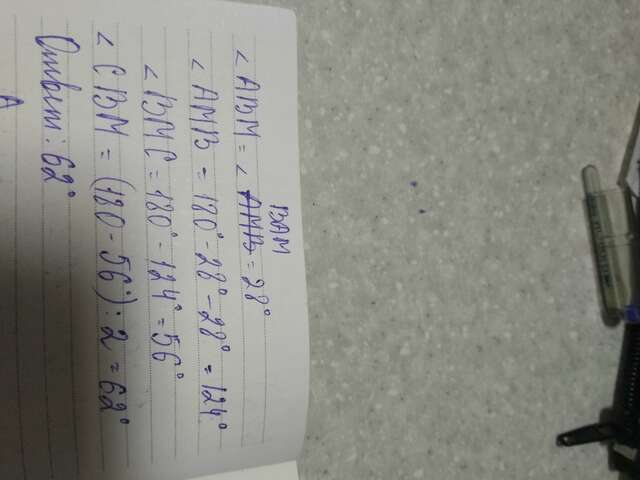 ∠ABM = ∠BAM = 28°
∠AMB = 180° - 28° - 28° = 124°
∠BMC = 180° - 124° = 56°
∠CBM = (180 - 56°) : 2 = 62°
Ответ: 62°
A